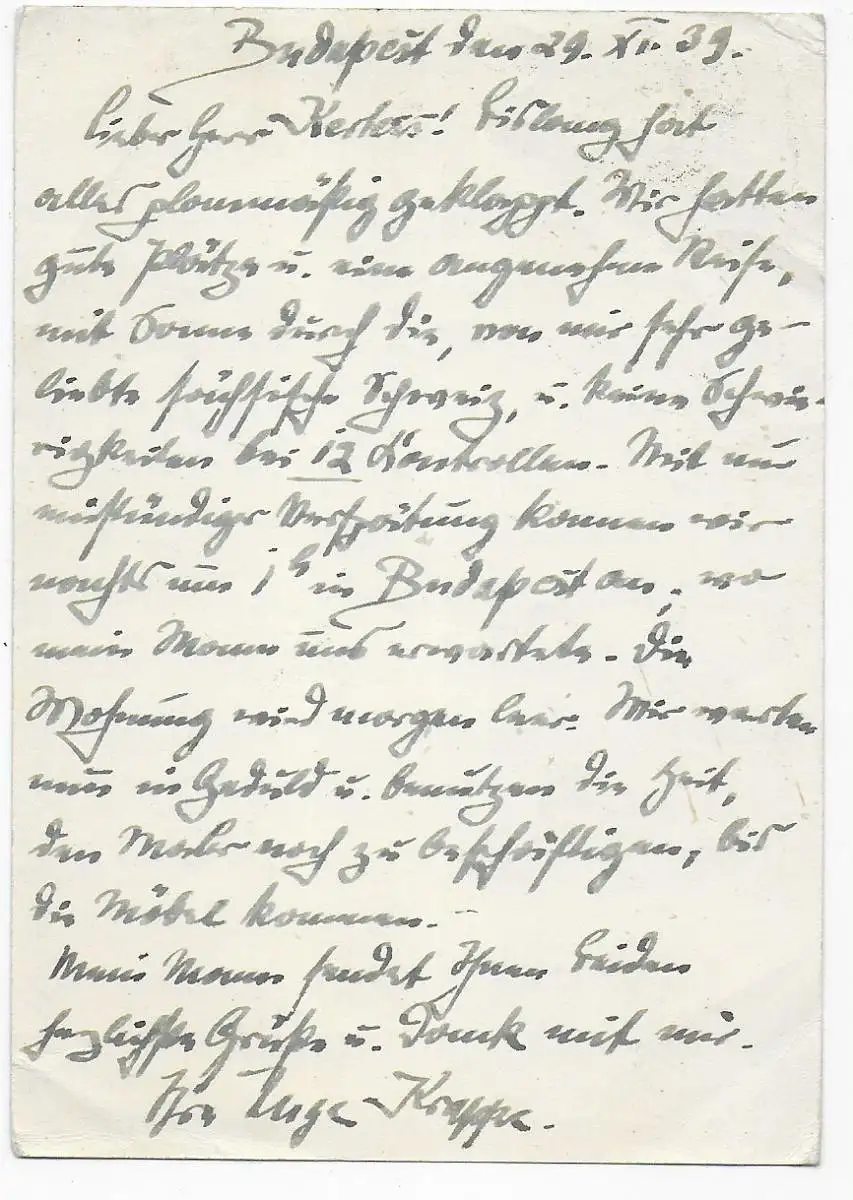 Budapest den 29. XI. 39.
Lieber Herr ! Bislang hat
alles planmäßig geklappt. Wir hatten
gute Plätze u. eine angenehme Reise,
mit Sonne durch die, von mir sehr ge-
liebte sächsische Schweiz, u. keine Schwie-
rigkeiten bei 12 Kontrollen. Mit nur
einstündiger Verspätung kamen wir
nachts um 1h in Budapest an, wo
mein Mann uns erwartete. Die
Wohnung wird morgen leer. Wir warten
nun in Geduld u. benutzen die Zeit,
den Maler noch zu beschäftigen, bis
die Möbel kommen.
Mein Mann sendet Ihnen beiden
herzlichste Grüße u. Dank mit mir.
Ihre Inge